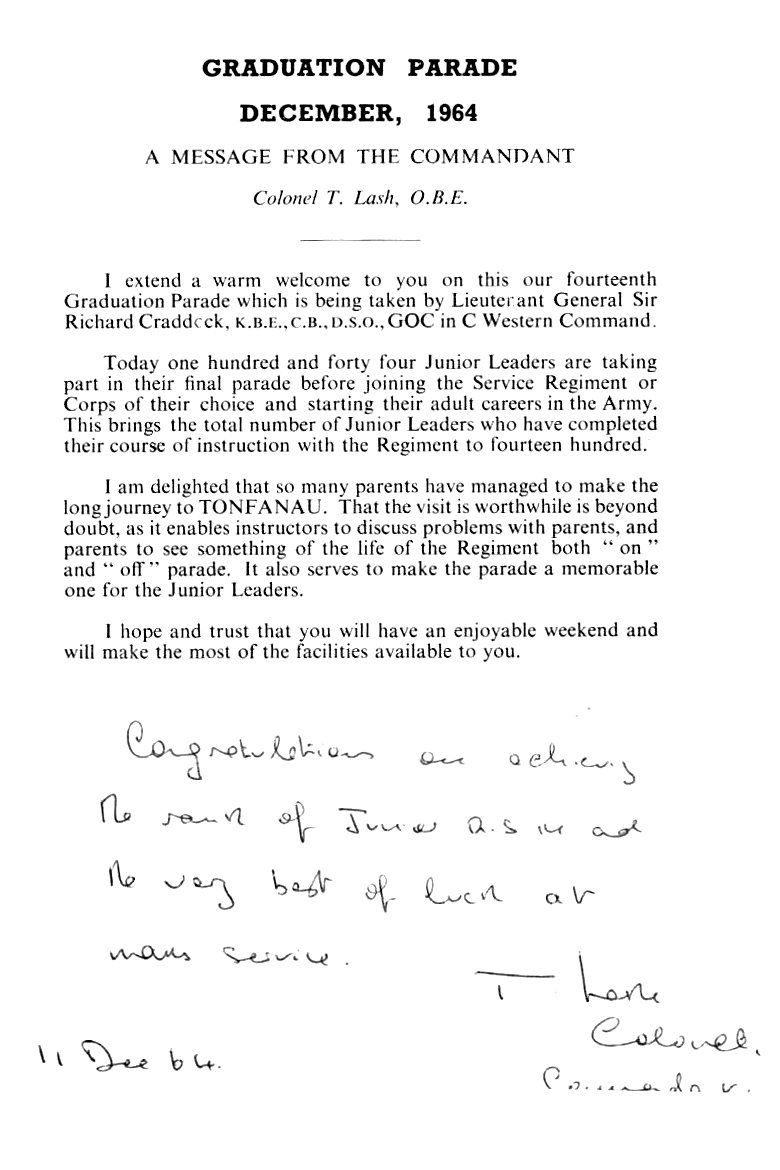 GRADUATION PARADE
DECEMBER, 1964
A MESSAGE FROM THE COMMANDANT
Colonel T. Lash, O.B.E.
I extend a warm welcome to you on this our fourteenth
Graduation Parade which is being taken by Lieutenant General Sir
Richard Craddock, K.B.E., C.B., D.S.O., GOC in C Western Command.
Today one hundred and forty four Junior Leaders are taking
part in their final parade before joining the Service Regiment or
Corps of their choice and starting their adult careers in the Army.
This brings the total number of Junior Leaders who have completed
their course of instruction with the Regiment to fourteen hundred.
I am delighted that so many parents have managed to make the
long journey to TONFANAU. That the visit is worthwhile is beyond
doubt, as it enables instructors to discuss problems with parents, and
parents to see something of the life of the Regiment both “ on ”
and “ off ” parade. It also serves to make the parade a memorable
one for the Junior Leaders.
I hope and trust that you will have an enjoyable weekend and
will make the most of the facilities available to you.
Congratulations on achieving
the rank of Junior R.S.M. and
the very best of luck at
mans service.
T Lash
Colonel.
11 Dec 64.
Commandant.